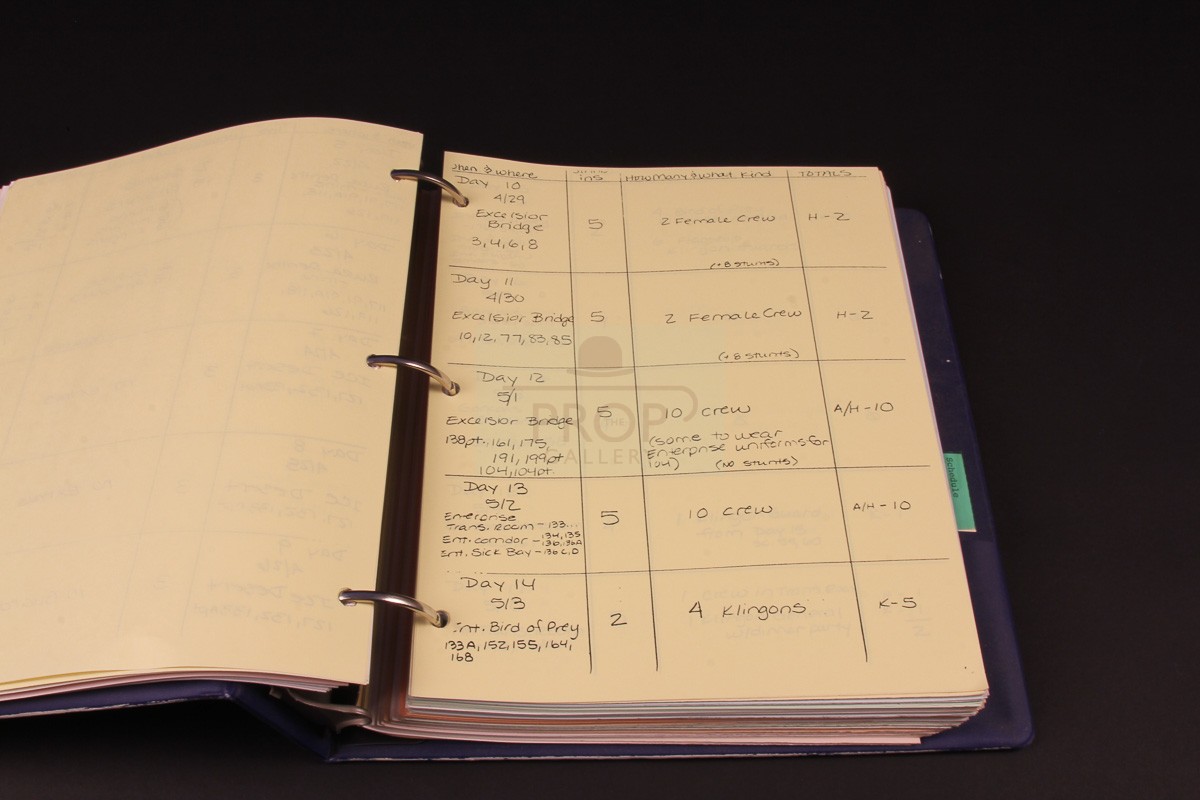 When & Where
ins
How Many & What Kind
TOTALS
Day 10
4/29
Excelsior
Bridge
3, 4, 6, 8
5
2 Female Crew
(+8 stunts)
H - 2
Day 11
4/30
Excelsior Bridge
10, 12, 77, 83, 85
5
2 Female Crew
(+8 stunts)
H - 2
Day 12
5/1
Excelsior Bridge
138pt., 161, 175,
191, 199pt
104, 104pt.
5
10 crew
(some to wear
Enterprise uniforms for
104) (No stunts)
A/H - 10
Day 13
5/2
Enterprise
Trans. Room - 133...
Ent. corridor - 134, 135
136, 136A
Ent. Sick Bay - 136 C, D
5
10 crew
A/H - 10
Day 14
5/3
Int. Bird of Prey
133A, 152, 155, 164,
168
2
4 Klingons
K - 5
schedule
THE
PROP
GALLERY